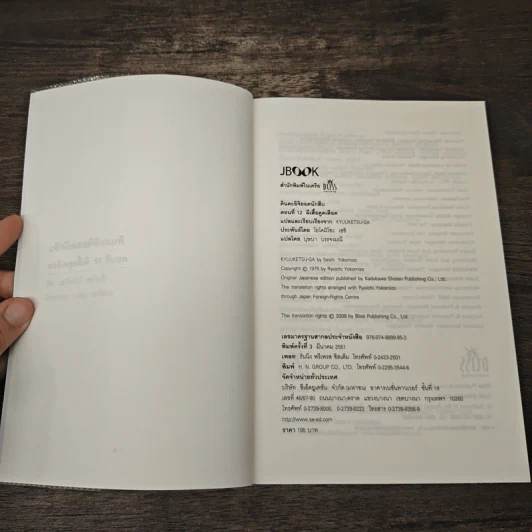 JBOOK
สำนักพิมพ์ในเครือ BLISS
คินดะอิจิยอดนักสืบ
ตอนที่ 12 ผีเสื้อดูดเลือด
แปลและเรียบเรียงจาก KYUUKETSU-GA
ประพันธ์โดย โยโคมิโซะ เซชิ
แปลโดย บุษบา บรรจงมณี
KYUUKETSU-GA by Seishi Yokomizo
Copyright © 1975 by Ryoichi Yokomizo
Original Japanese edition published by Kadokawa Shoten Publishing Co., Ltd.
Thai translation rights arranged with Ryoichi Yokomizo
through Japan Foreign-Rights Centre
Thai translation rights © 2008 by Bliss Publishing Co., Ltd.
เลขมาตรฐานสากลประจำหนังสือ 978-974-8699-95-3
พิมพ์ครั้งที่ 3 มีนาคม 2551
เพลท
พิมพ์ H. N. GROUP CO., LTD.
จัดจำหน่ายทั่วประเทศ
บริษัท ซีเอ็ดยูเคชั่น จำกัด (มหาชน) อาคารเนชั่นทาวเวอร์ ชั้นที่ 19
เลขที่ 46/87-90 ถนนบางนา-ตราด แขวงบางนา เขตบางนา กรุงเทพฯ 10260
โทรศัพท์ 0-2739-8000, 0-2739-8222 โทรสาร
http://www.se-ed.com
ราคา 195 บาท